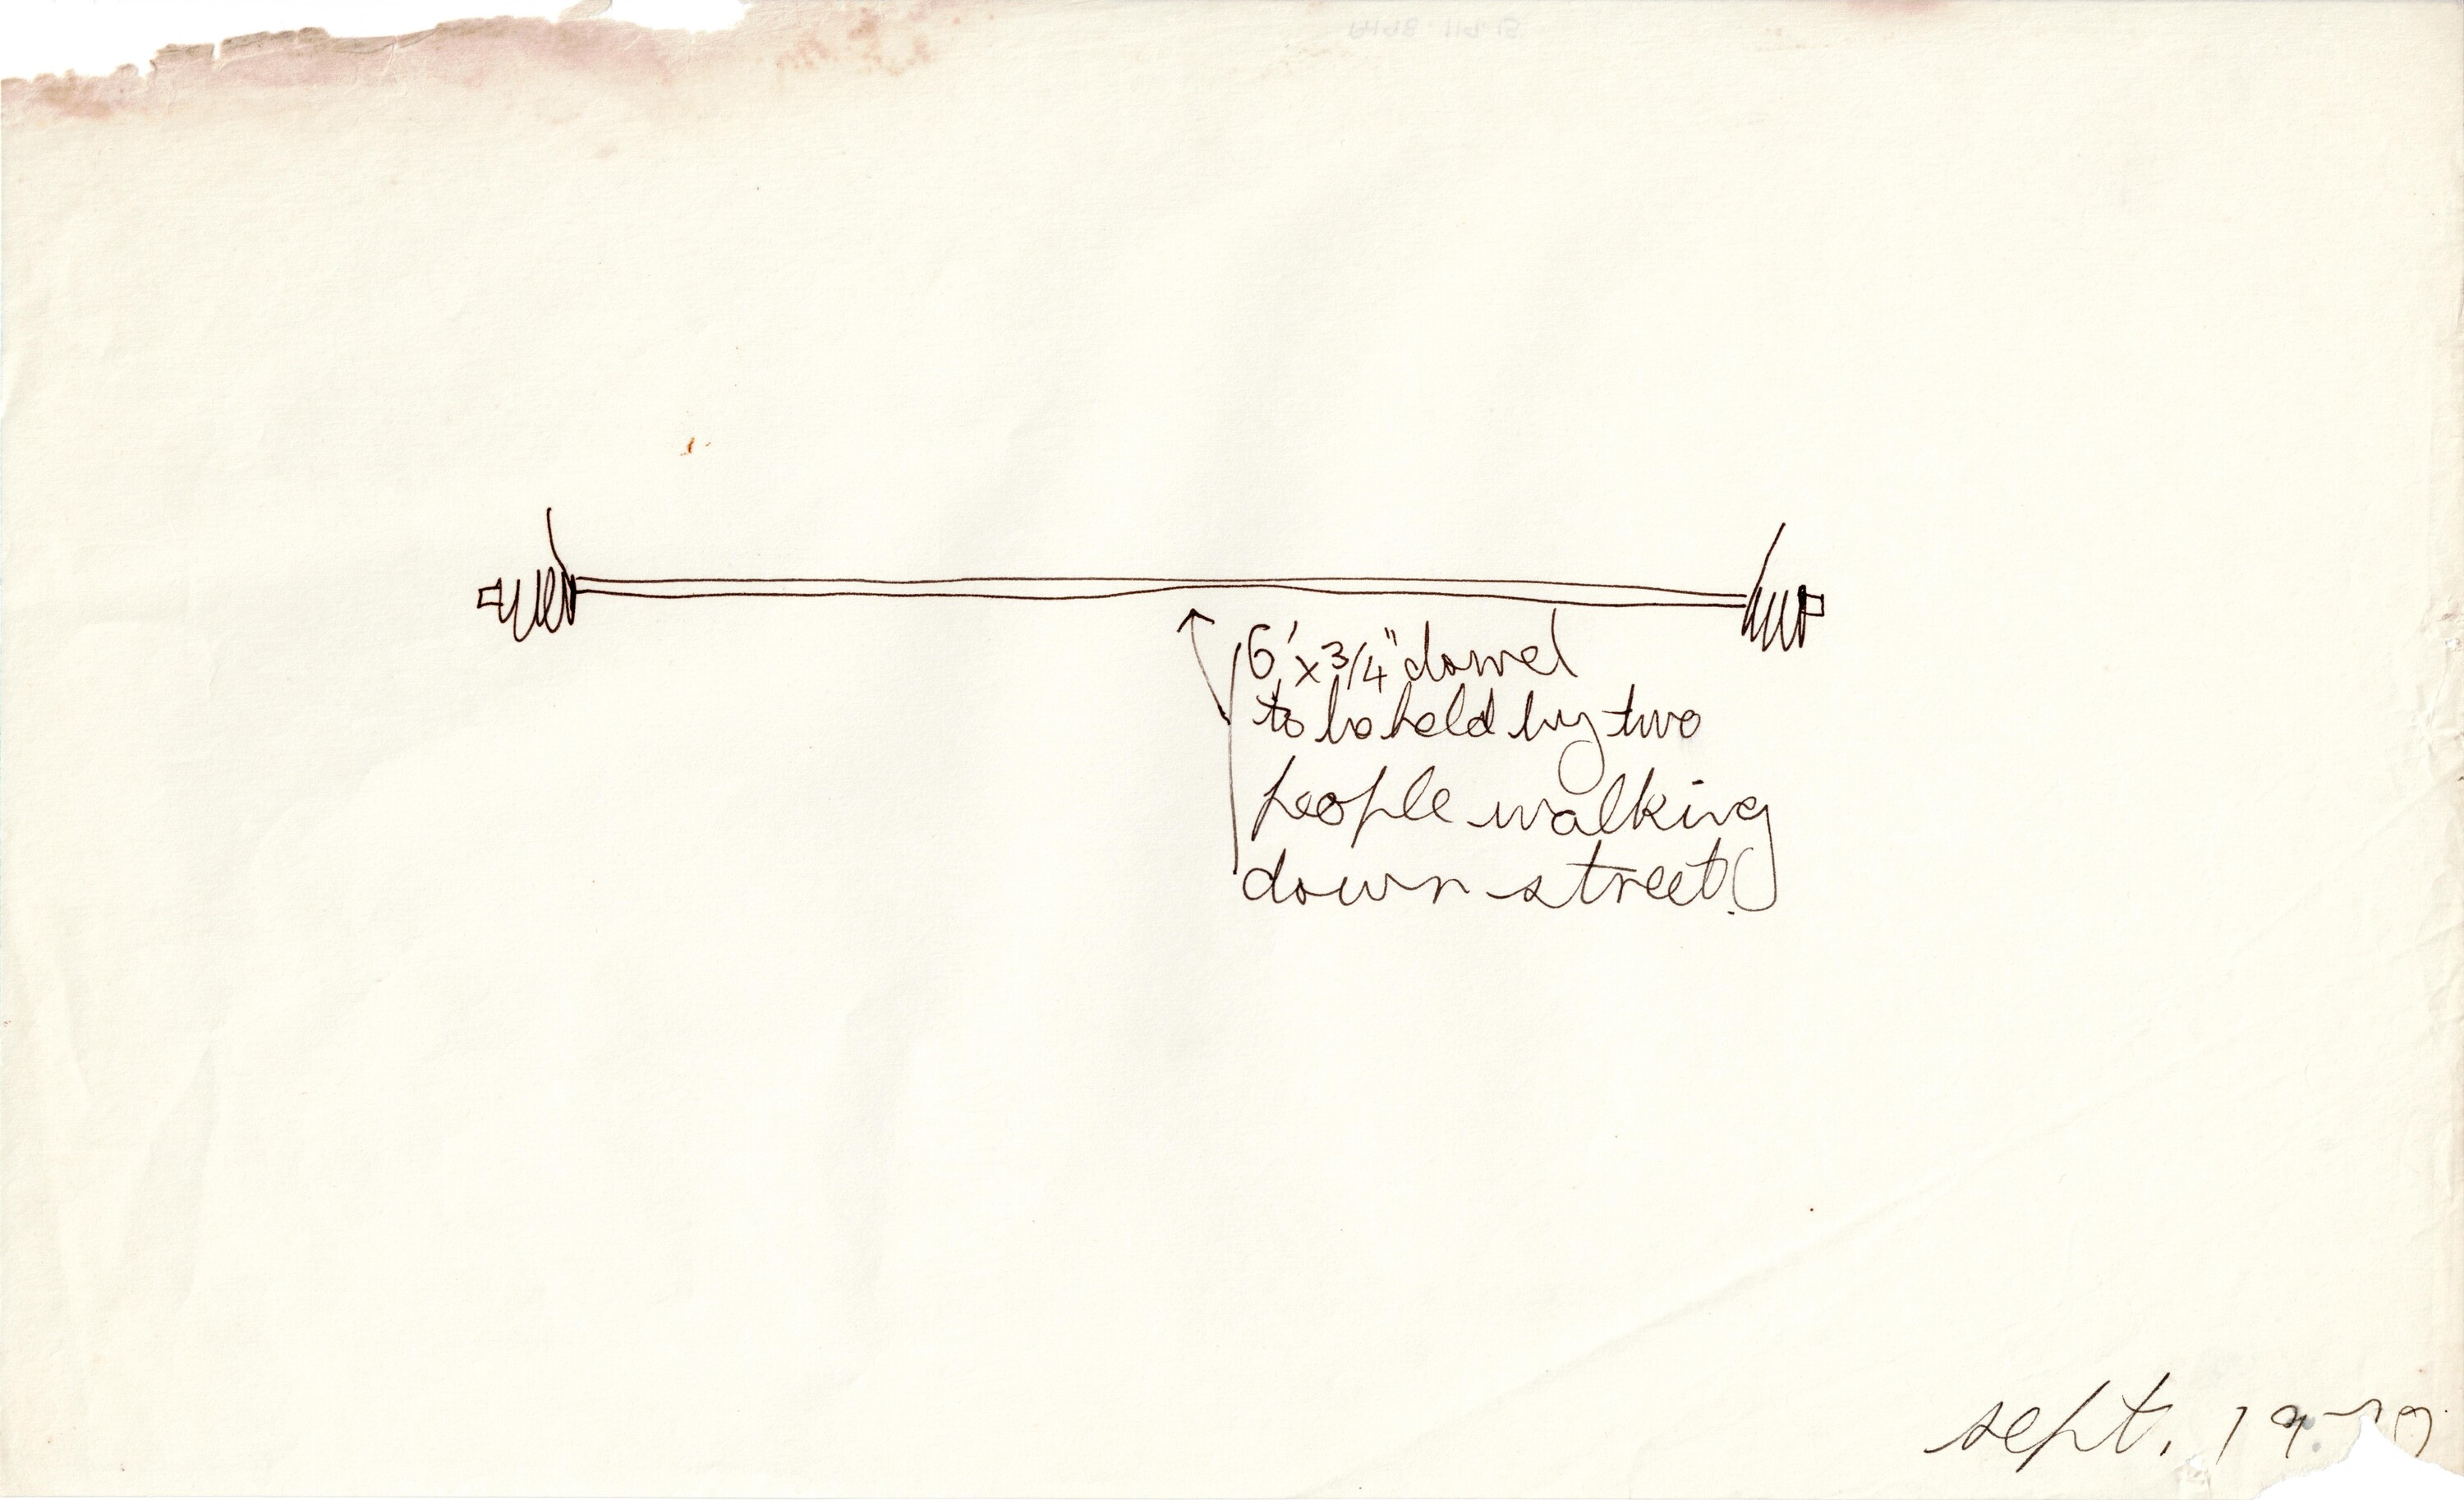 6' x 3/4" dowel
to be held by two
people walking
down street.
sept. 1970